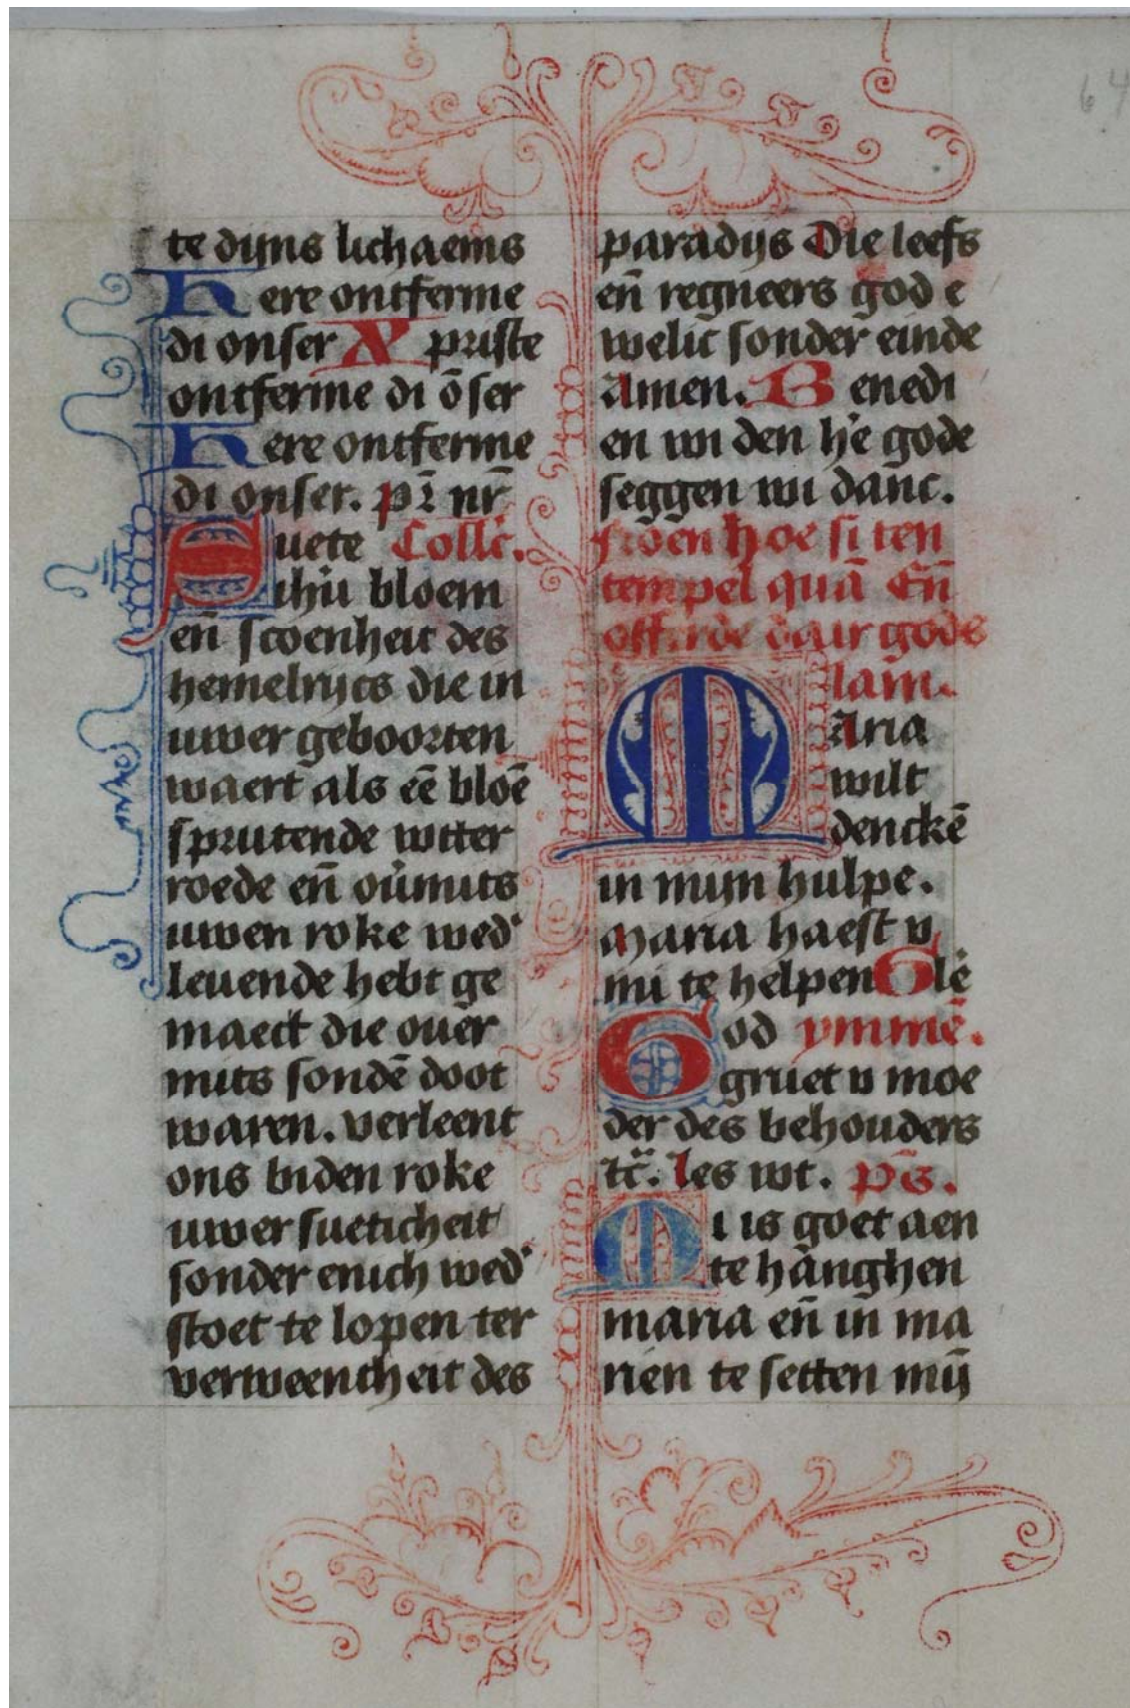 64
te dijns lichaems
Here ontferme
di onser Xpriste
ontferme di ōser
Here ontferme
di onser. pr̄ nr̄
Suete Collc̄.
ihū bloem
en̄ scoenheit des
hemelrijcs die in
uwer geboorten
waert als eē bloē
sprutende wtter
roede en̄ ou̾mits
uwen roke wed̾
leuende hebt ge
maect die ouer
mits sondē doot
waren. verleent
ons biden roke
uwer sueticheit
sonder enich wed̾
stoet te lopen ter
verweentheit des
paradijs Die leefs
en̄ regneers god e
welic sonder einde
Amen. Benedi
en wi den h̾e gode
seggen wi danc.
hoe si ten
tempel quā En̄
offerde gods
lam.
Maria
wilt
denckē
in mijn hulpe.
Maria haest v
mi te helpen Glē
God ymmē.
gruet v moe
der des behouders
tc̄. les wt. ps̄.
Mi is goet aen
te hanghen
maria en̄ in ma
rien te setten mij̄